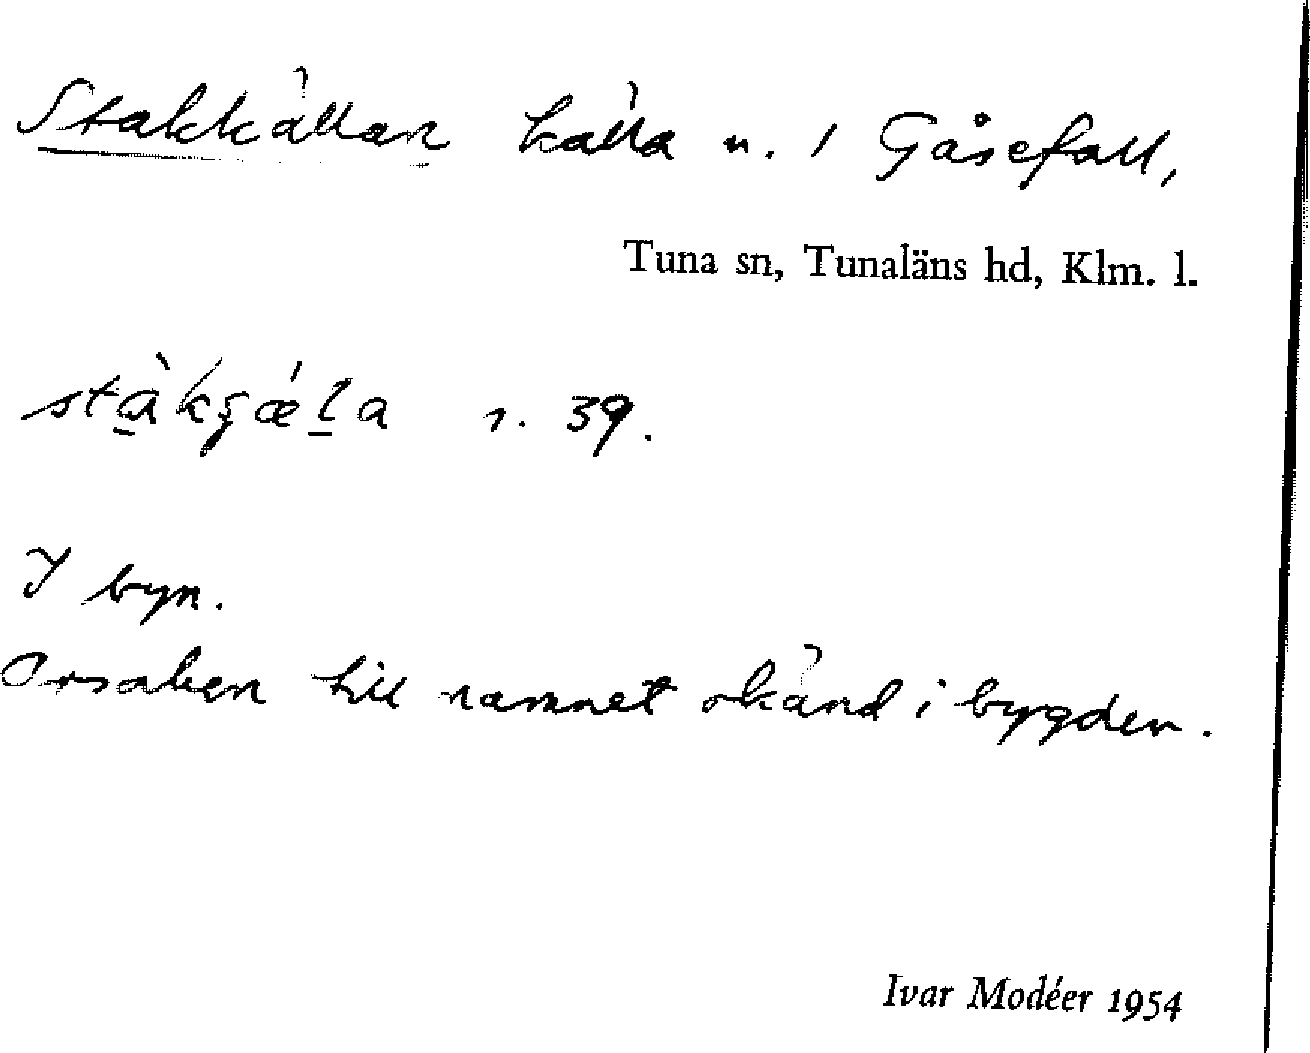 Stakkällan källa n. / Gåsefall,
Tuna sn, Tunaläns hd, Klm. l.
r. 39.
I byn.
Orsaken till namnet okänd i bygden.
Ivar Modéer 1954